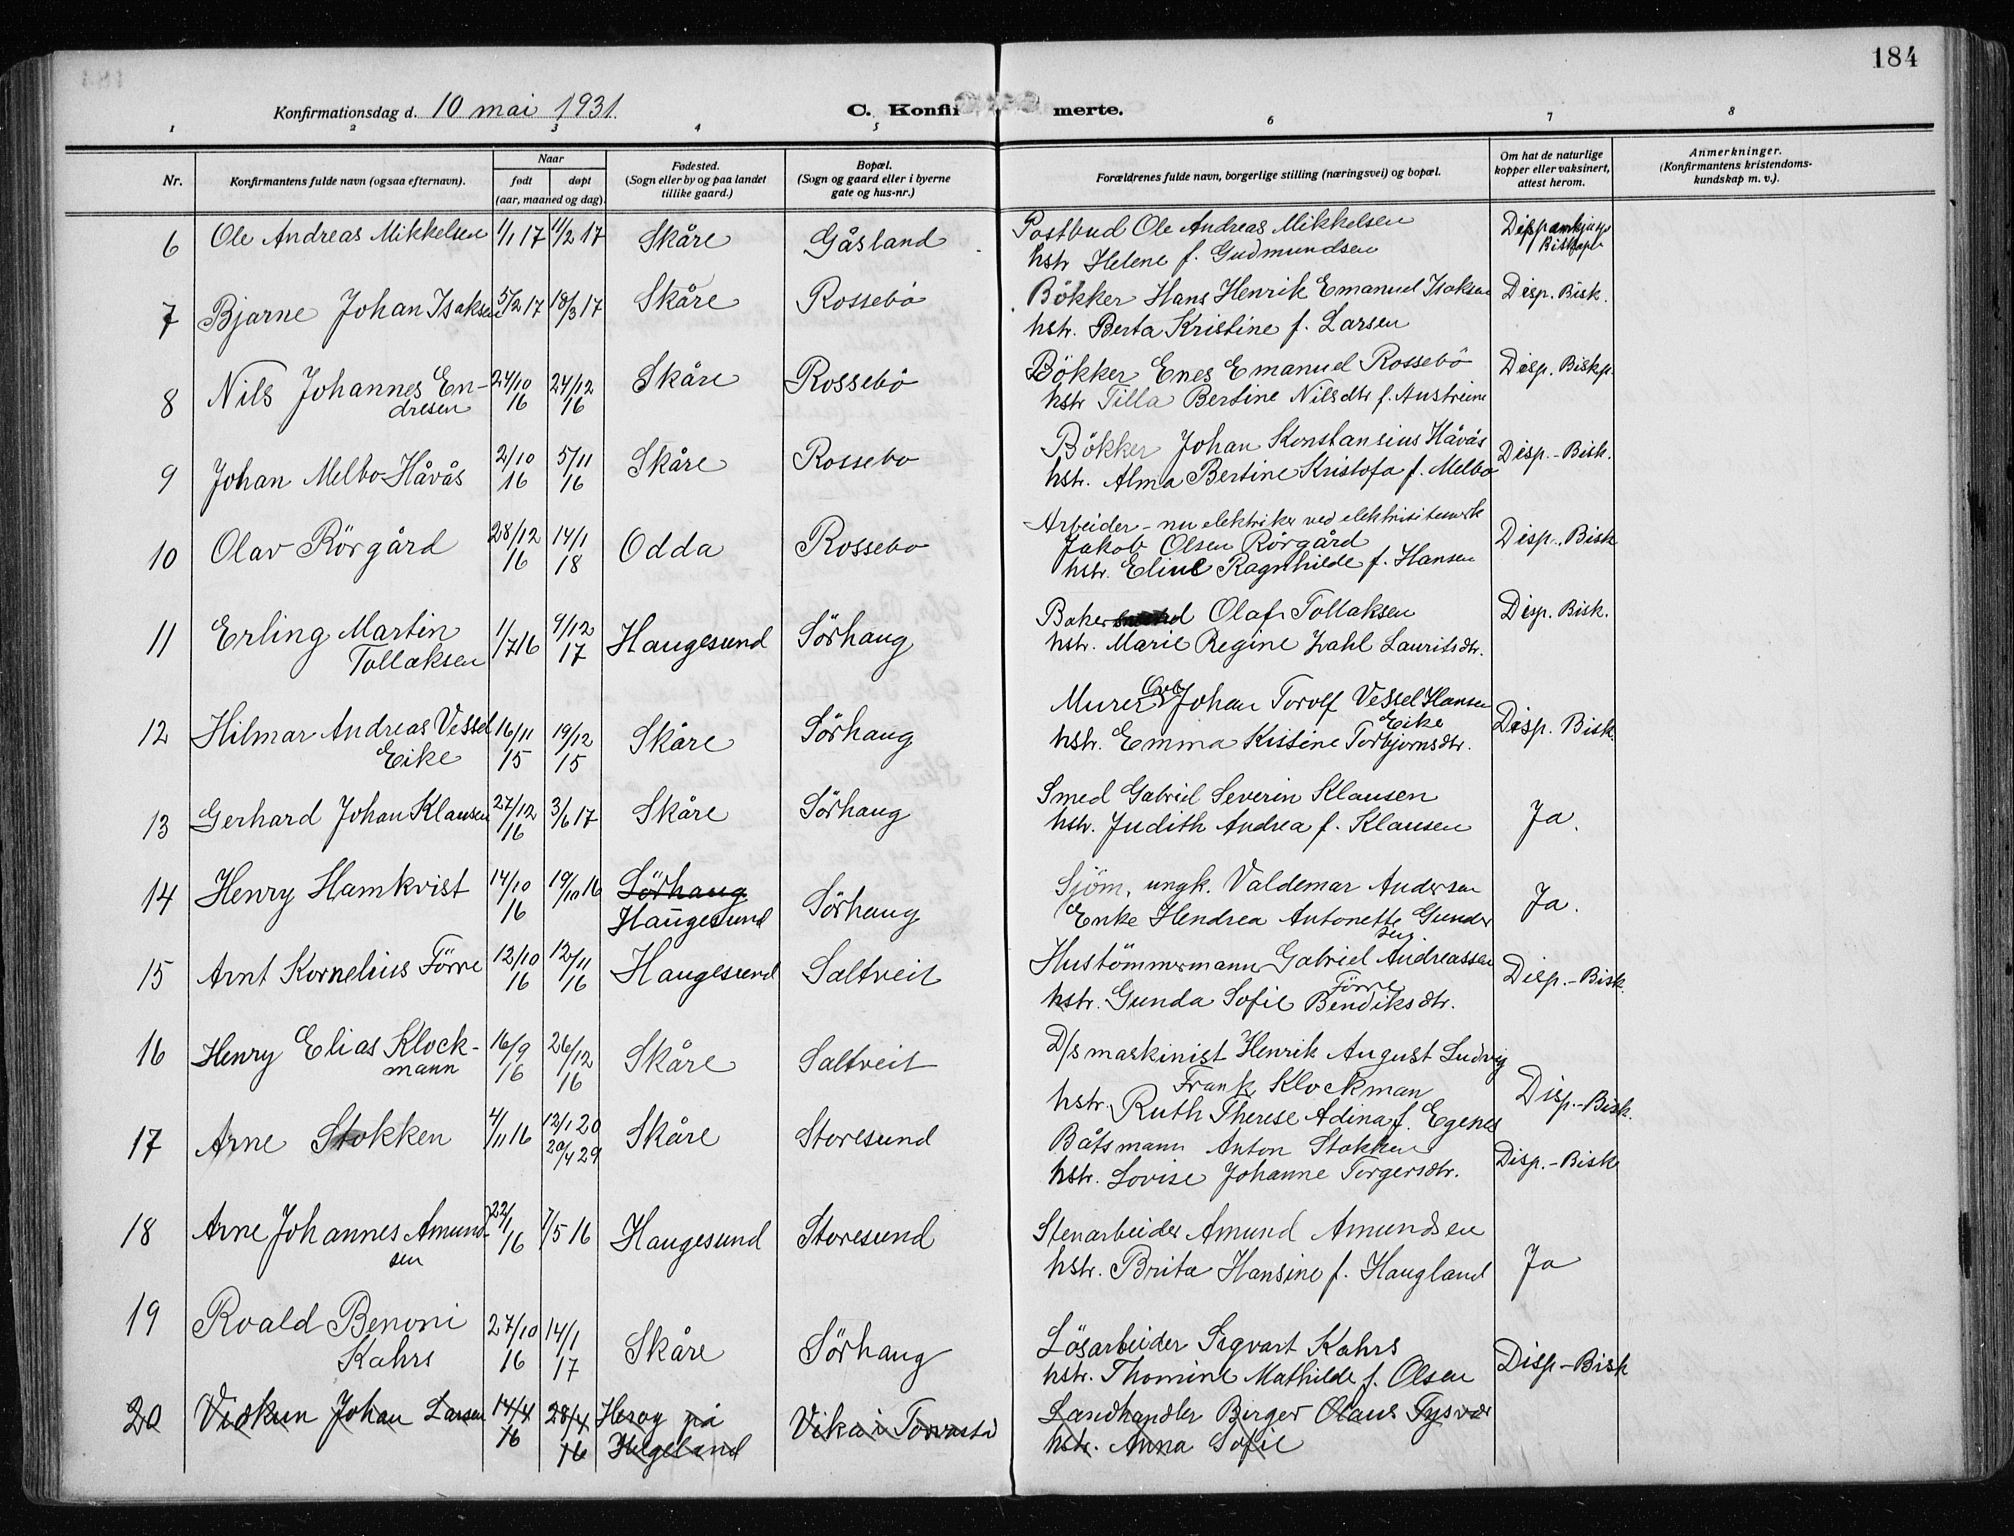 184
Konfirmationsdag d. 10 mai 1931.
C. Konfirmerte.
1 2 3 4 5 6 7 8
Nr.
Konfirmantens fulde navn (ogsaa efternavn).
Naar
født døpt
(aar, maaned og dag).
Fødested.
(Sogn eller by og paa landet
tillike gaard.)
Bopæl.
(Sogn og gaard eller i byerne
gate og hus-nr.)
Forældrenes fulde navn, borgerlige stilling (næringsvei) og bopæl.
Om hat de naturlige
kopper eller vaksinert,
attest herom.
Anmerkninger.
(Konfirmantens kristendoms-
kundskap m. v.).
6 Ole Andreas Mikkelsen 1/1 17 11/2 17 Skåre Gåsland Postbud Ole Andreas Mikkelsen
hstr Helene f. Gudmundsen
7 Bjarne Johan Isaksen 5/2 17 18/3 17 Skåre Rossebö Bökker Hans Henrik Emanuel Isaksen Disp. Bisk.
hstr. Berta Kristine f. Larsen
8 Nils Johannes En- 24/10 24/12 Skåre Rossebö Bökker Enes Emanuel Rossebö Disp. Biskp.
dresen 16 16 hstr Tilla Bertine Nilsdtr f. Austreim
9 Johan Melbo Håvås 2/10 16 5/11 16 Skåre Rossebo Bökker Johan Konstansius Håvås Disp. - Bisk.
hstr. Alma Bertine Kristofa f. Melbo
10 Olav Rörgård 28/12 16 14/1 18 Odda Rossebo Arbeider - nu elektriker ved elektrisitetsverk Disp. Bisk
Jakob Olsen Rörgård
hstr. Eline Ragnhilde f. Hansen
11 Erling Martin 1/7 16 9/12 17 Haugesund Sörhaug Baker Olaf Tollaksen Disp. Bisk.
Tollaksen hstr. Marie Regine Zahl Lauritsdtr.
12 Hilmar Andreas Vessel 16/11 15 19/12 15 Skåre Sörhaug Murer Johan Torolf Vessel Hansen Disp. Bisk.
Eike Eike
hstr. Emma Kristine Torbjornsdtr.
13 Gerhard Johan Klausen 27/12 16 3/6 17 Skåre Sörhaug Smed Gabriel Severin Klausen Ja.
hstr. Judith Andrea f. Klausen
14 Henry Hamkvist 14/10 16 19/10 16 Sörhaug Sörhaug Sjöm. ungk. Valdemar Andersen Ja.
Haugesund Enke Hendrea Antonette Gunder
sen
15 Arnt Kornelius Förre 12/10 16 12/11 16 Haugesund Saltveit Hustömmermann Gabriel Andreassen Disp. - Bisk.
Förre
hstr. Gunda Sofie Bendiksdtr.
16 Henry Elias Klock- 16/9 16 26/12 16 Skåre Saltveit D/s maskinist Henrik August Ludvig
mann Frank Klockman Disp. - Bisk.
hstr. Ruth Therese Adina f. Egenes
17 Arne Stokken 4/11 16 12/1 20 Skåre Storesund Båtsmann Anton Stokken Disp. - Bisk
20/4 29 hstr. Lovise Johanne Torgersdtr.
18 Arne Johannes Amund- 22/1 16 7/5 16 Haugesund Storesund Stenarbeider Amund Amundsen Ja
sen hstr. Brita Hansine f. Haugland
19 Roald Benoni 27/10 16 14/1 17 Skåre Sörhaug Lösarbeider Sigvart Kahrs Disp - Bisk
Kahrs hstr. Thomine Mathilde f. Olsen
20 Vidkun Johan Larsen 14/4 16 28/4 16 Herøy på Vika i Torvastd Landhandler Birger Olaus Tysvær
Helgeland hstr. Anna Sofie